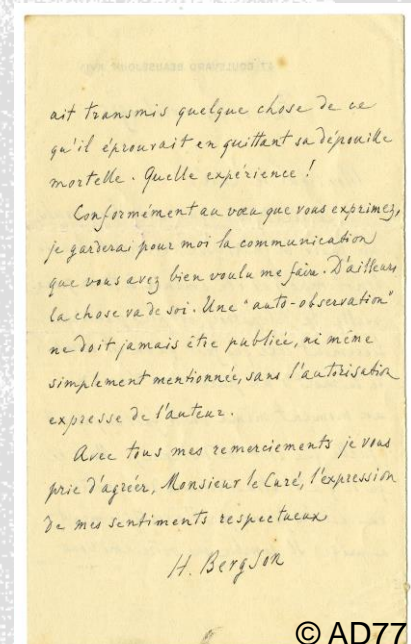 ait transmis quelque chose de ce
qu'il éprouvait en quittant sa dépouille
mortelle. Quelle expérience !
Conformément au vœu que vous exprimez,
je garderai pour moi la communication
que vous avez bien voulu me faire. D'ailleurs
la chose va de soi. Une "auto-observation"
ne doit jamais être publiée, ni même
simplement mentionnée, sans l'autorisation
expresse de l'auteur.
Avec tous mes remerciements je vous
prie d'agréer, Monsieur le Curé, l'expression
de mes sentiments respectueux
H. Bergson
© AD77